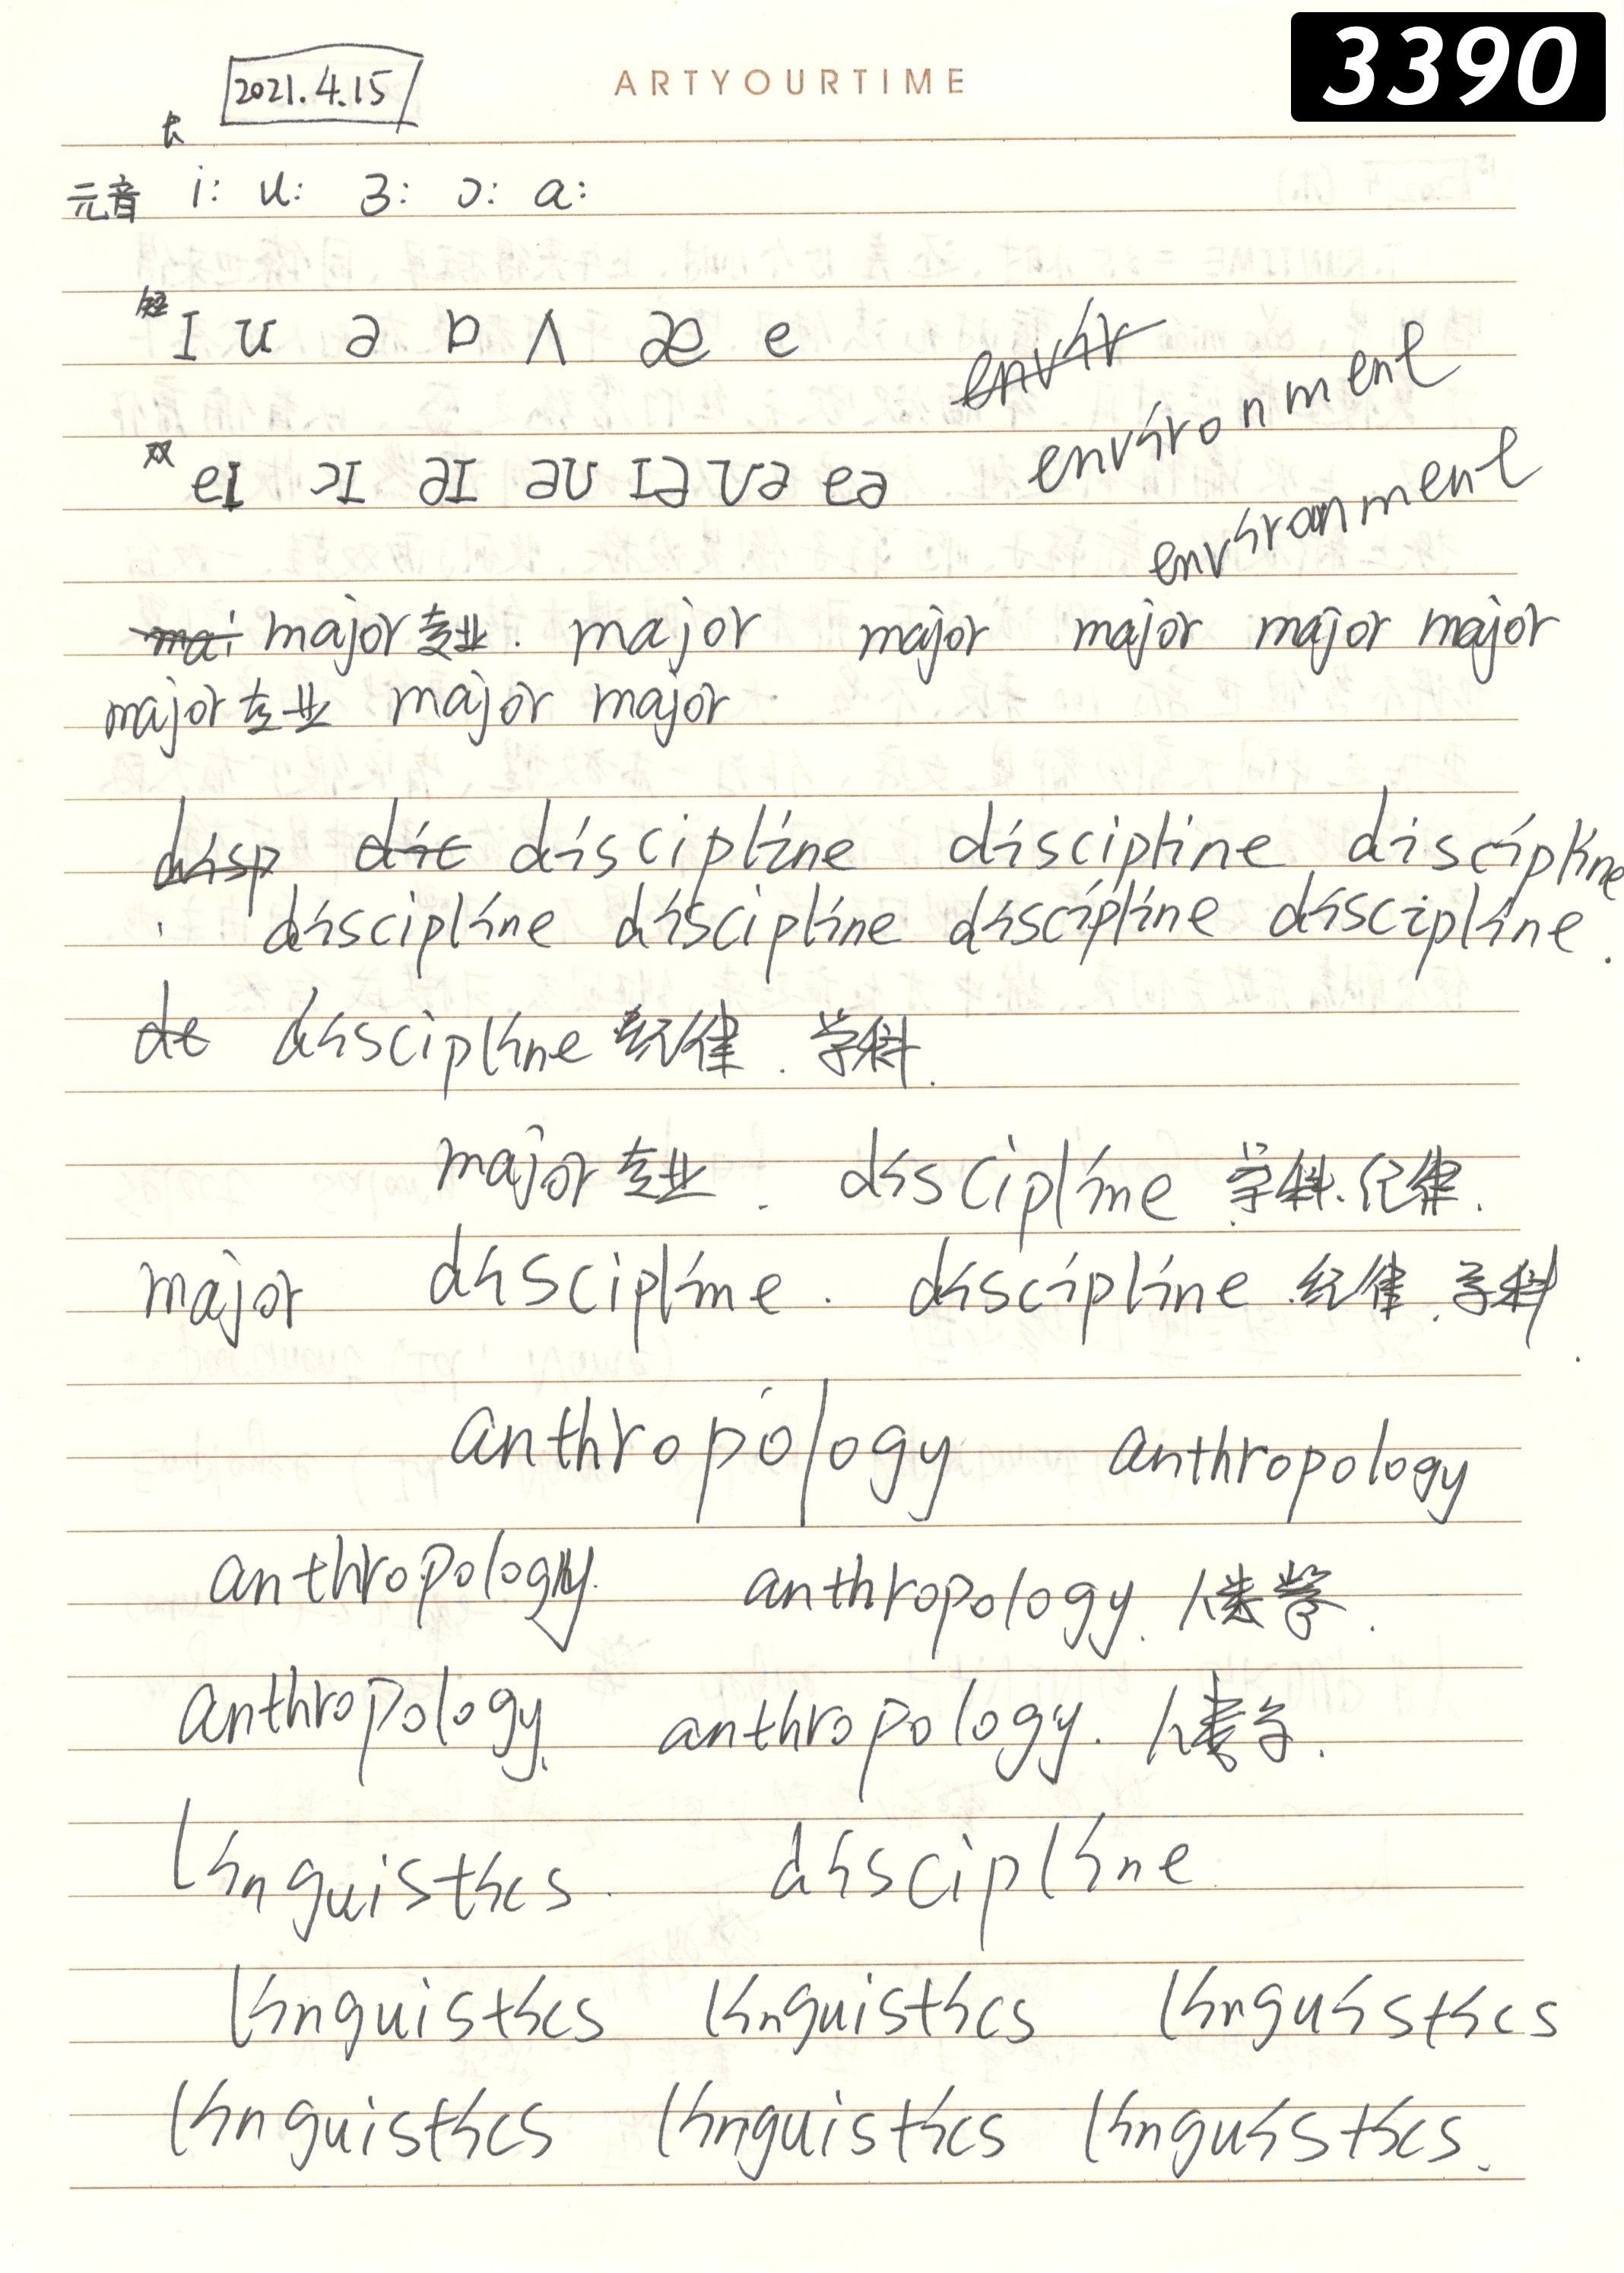 3390
2021.4.15
ARTYOURTIME
长
元音 i: u: ɜ: ɔ: a:
短 I ʊ ə ɒ ʌ æ e
envir
environment
双 eI ɔI əI əʊ Iə ʊə eə
environment
mai major 专业. major major major major major
major 专业 major major
disp dic discipline discipline discipline
discipline discipline discipline discipline.
dc discipline 纪律. 学科.
major 专业. discipline 学科. 纪律.
major discipline. discipline 纪律. 学科.
anthropology anthropology
anthropology. anthropology. 人类学.
anthropology. anthropology. 人类学.
linguistics. discipline
linguistics linguistics linguistics
linguistics linguistics linguistics.